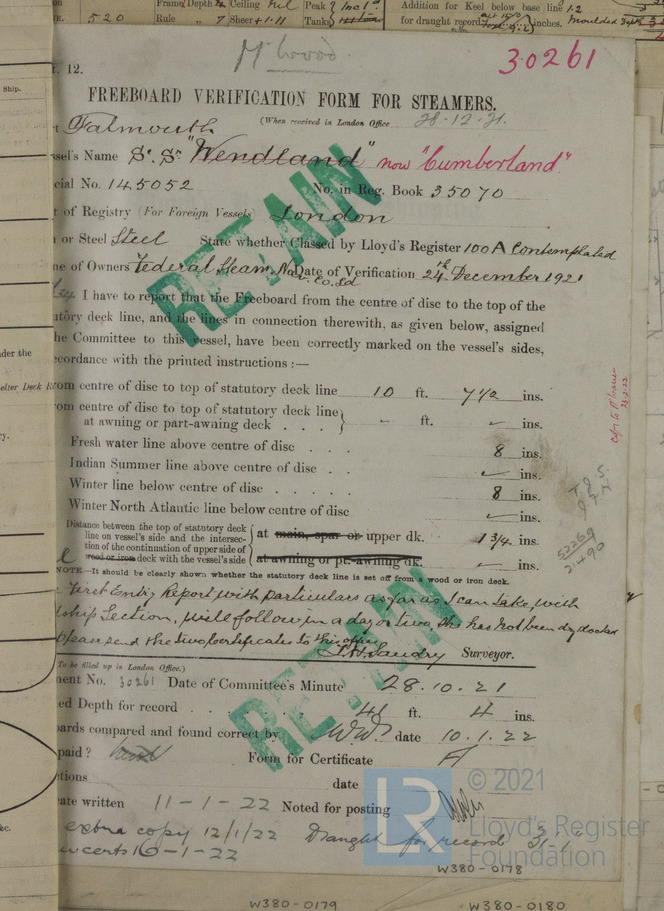 520
Frame Depth
Rule 7
Ceiling Nil
Sheer + 1·11
Peak
Tanks
Addition for Keel below base line 1.2
for draught record inches.
Moulded Depth
30261
12.
Ship.
FREEBOARD VERIFICATION FORM FOR STEAMERS.
(When received in London Office 28-12-21.
Falmouth
sel's Name S.S. "Wendland" now "Cumberland"
cial No. 145052 No. in Reg. Book 35070
t of Registry (For Foreign Vessels) London
n or Steel Steel State whether Classed by Lloyd's Register 100A Contemplated
ne of Owners Federal Steam Nav. Co. Ld Date of Verification 24th December 1921
I have to report that the Freeboard from the centre of disc to the top of the
utory deck line, and the lines in connection therewith, as given below, assigned
he Committee to this vessel, have been correctly marked on the vessel's sides,
ccordance with the printed instructions :—
rom centre of disc to top of statutory deck line 10 ft. 7 1/2 ins.
rom centre of disc to top of statutory deck line
at awning or part-awning deck . . . - ft. ins.
Fresh water line above centre of disc . . . 8 ins.
Indian Summer line above centre of disc . . ins.
Winter line below centre of disc . . . . . 8 ins.
Winter North Atlantic line below centre of disc ins.
Distance between the top of statutory deck
line on vessel's side and the intersec-
tion of the continuation of upper side of
wood or iron deck with the vessel's side
at main, spar or upper dk. 1 3/4 ins.
at awning or pt.-awning dk. ins.
NOTE.—It should be clearly shown whether the statutory deck line is set off from a wood or iron deck.
First Entry Report with particulars as far as I can take, with
ship Section, will follow in a day or two, she has not been dry docked
Please send the two Certificates to this office
Surveyor.
To be filled up in London Office.)
ment No. 30261 Date of Committee's Minute 28.10.21
ed Depth for record . . . 41 ft. 4 ins.
oards compared and found correct by W.W. date 10.1.22
paid? Form for Certificate
tions date
ate written 11-1-22 Noted for posting
extra copy 12/1/22 Draught for record
certs 10-1-22
RETAIN
RETAIN
52269
21490
der the
elter Deck
© 2021
LR
Lloyd's Register
Foundation
W380-0178
W380-0179
W380-0180